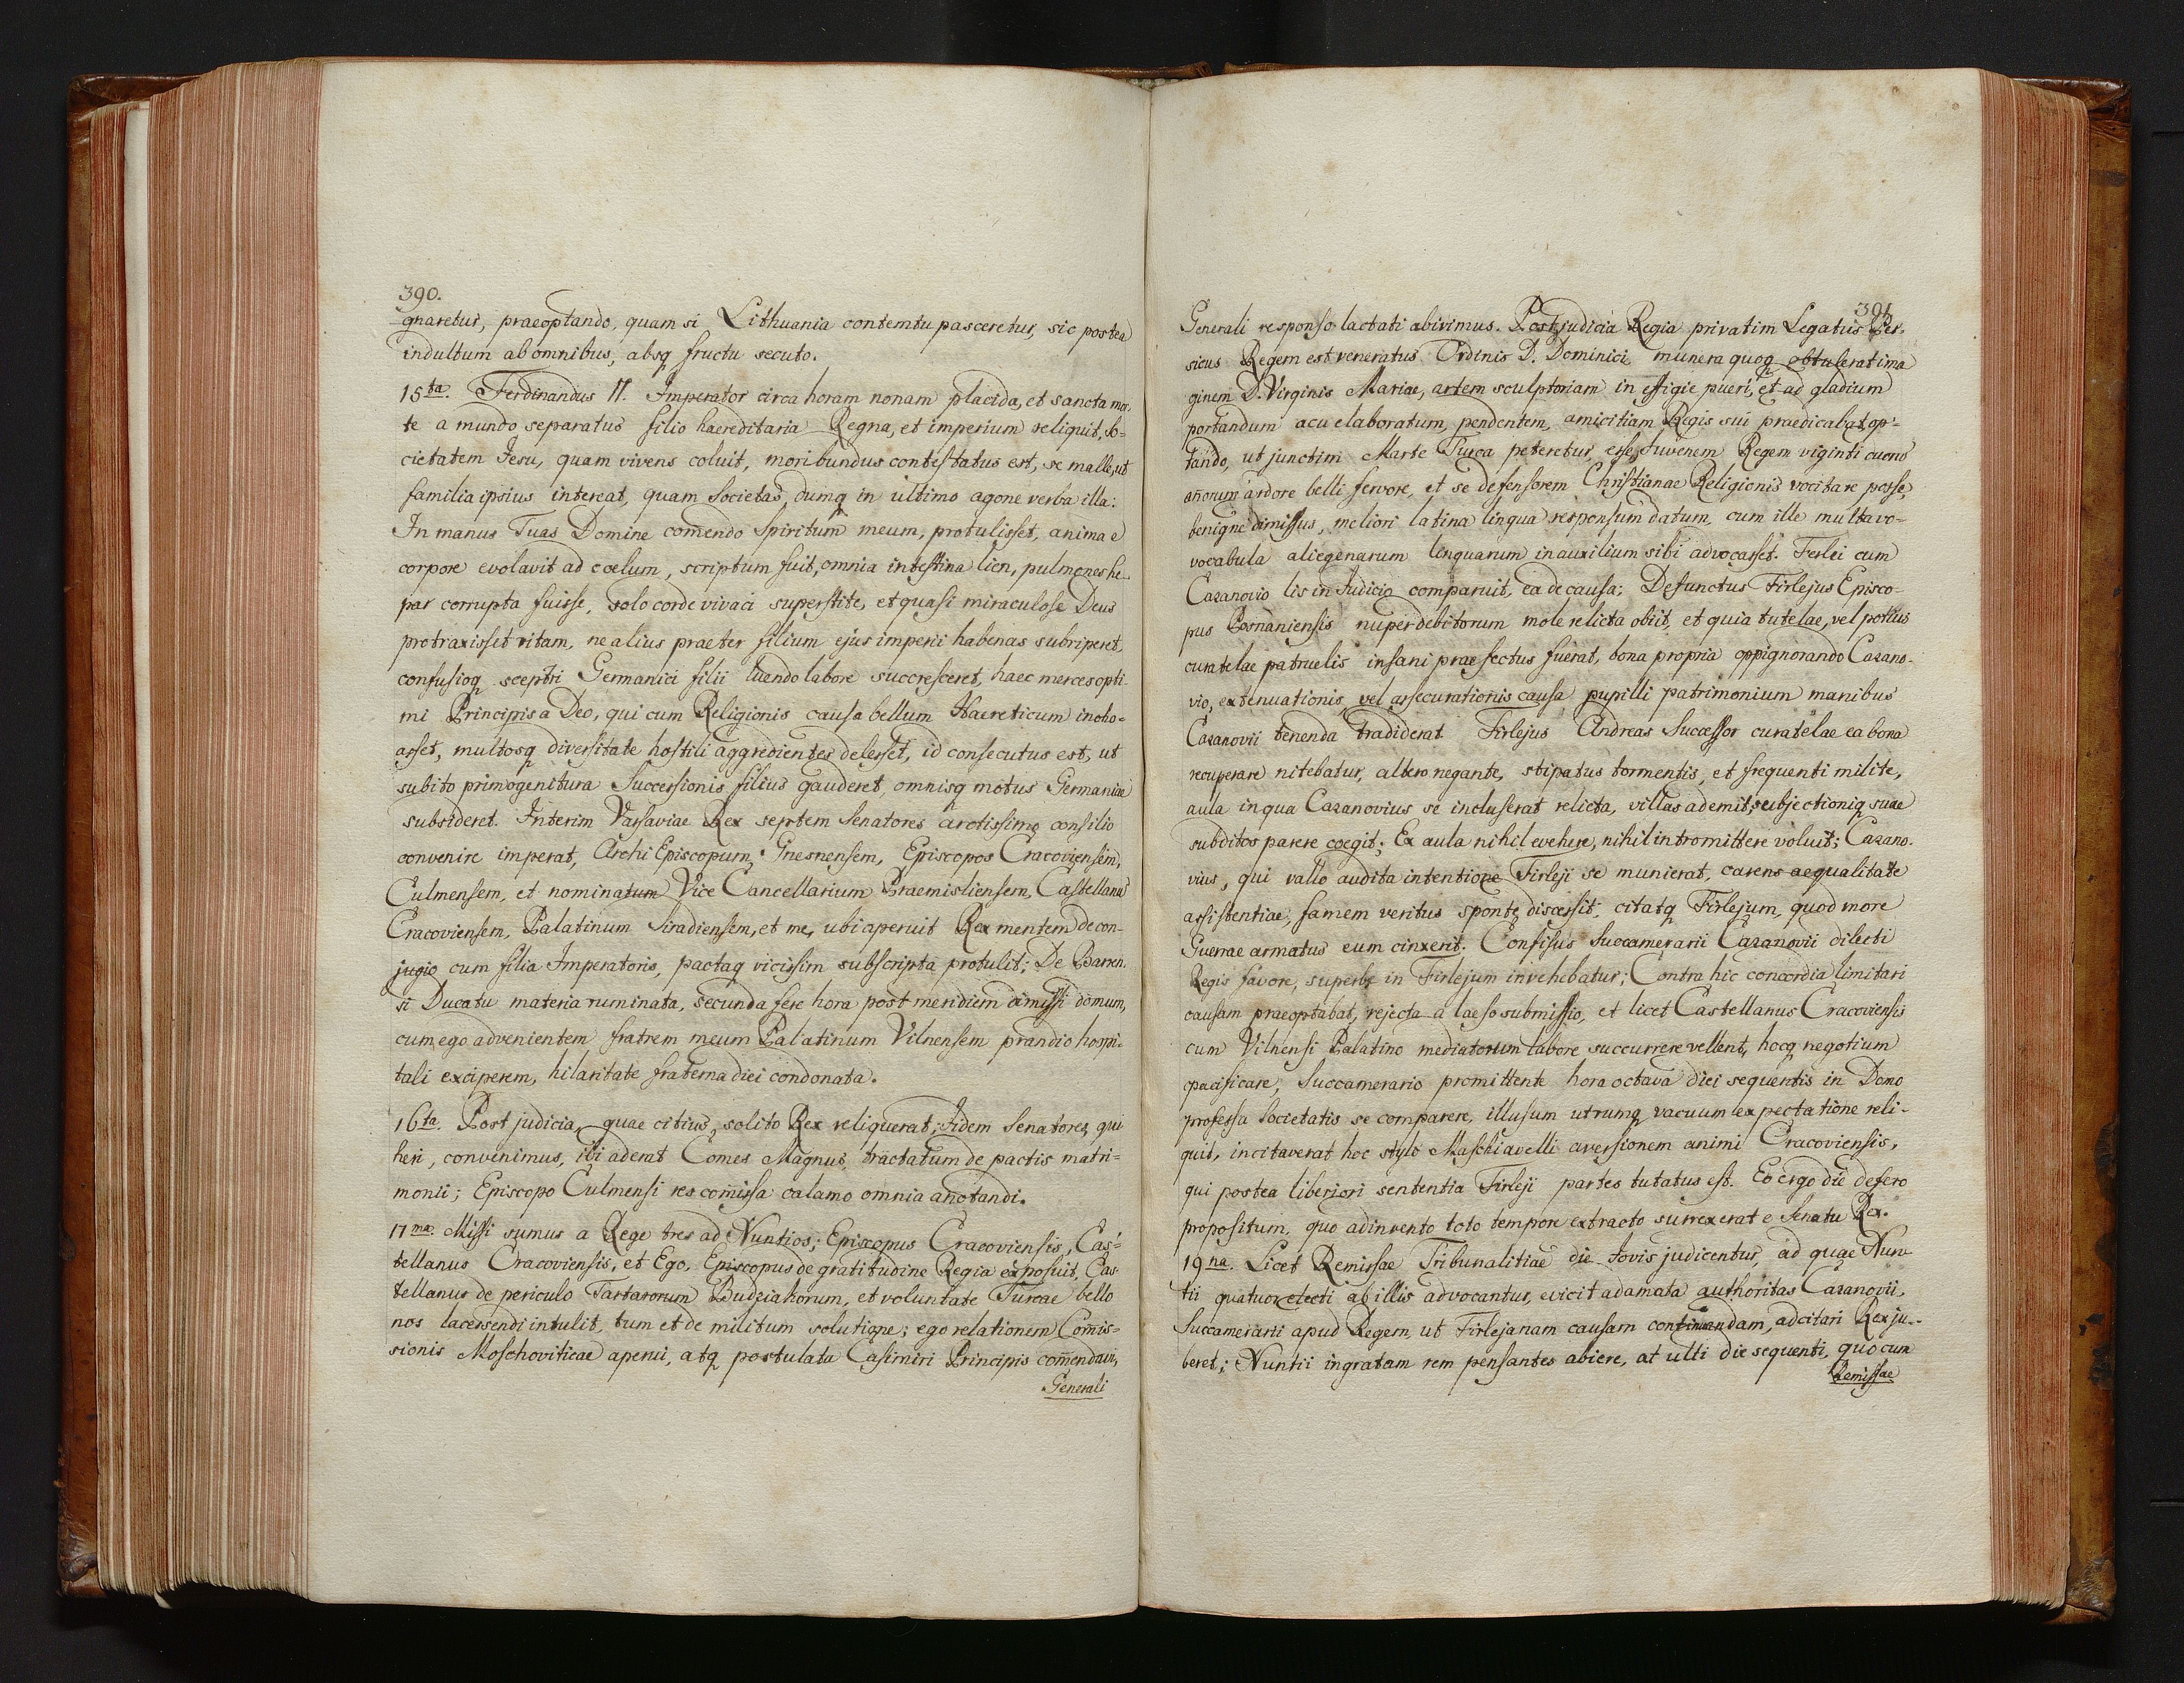 390.
gnaretur, praeoptando, quam si Lithuania contemtu pasceretur, sic postea
indultum ab omnibus, absq fructu secuto.
15ta. Ferdinandus II. Imperator circa horam nonam placida, et sancta mor-
te a mundo separatus filio haereditaria Regna, et imperium reliquit, So-
cietatem Jesu, quam vivens coluit, moribundus contestatus est, se malle, ut
familia ipsius intereat, quam Societas, dumq in ultimo agone verba illa:
In manus Tuas Domine com̄endo Spiritum meum, protulisset, anima e
corpore evolavit ad coelum, scriptum fuit, omnia intestina lien, pulmones he-
par corrupta fuisse, solo corde vivaci superstite, et quasi miraculose Deus
protraxisset vitam, ne alius praeter filium ejus imperii habenas subriperet,
confusioq sceptri Germanici filii luendo labore succresceret, haec merces opti-
mi Principis a Deo, qui cum Religionis causa bellum Haereticum incho-
asset, multosq diversitate hostili aggredientes delesset, id consecutus est, ut
subito primogenitura Successionis filius gauderet, omnisq motus Germaniae
subsideret. Interim Varsaviae Rex septem Senatores arctissimo consilio
convenire imperat, Archi Episcopum Gnesnensem, Episcopos Cracoviensem,
Culmensem, et nominatum Vice Cancellarium Praemisliensem, Castellanū
Cracoviensem, Palatinum Siradiensem, et me, ubi aperuit Rex mentem de con-
jugio cum filia Imperatoris, pactaq vicissim subscripta protulit; De Barren-
si Ducatu materia ruminata, secunda fere hora post meridiem dimissi domum,
cum ego advenientem fratrem meum Palatinum Vilnensem prandio hospi-
tali exciperem, hilaritate fraterna diei condonata.
16ta. Post judicia, quae citius solito Rex reliquerat, Iidem Senatores, qui
heri, convenimus, ibi aderat Comes Magnus, tractatum de pactis matri-
monii; Episcopo Culmensi res com̄issa calamo omnia an̄otandi.
17ma. Missi sumus a Rege tres ad Nuntios; Episcopus Cracoviensis, Cas-
tellanus Cracoviensis, et Ego, Episcopus de gratitudine Regia exposuit, Cas-
tellanus de periculo Tartarorum Budziakorum, et voluntate Turcae bello
nos lacersendi intulit, tum et de militum solutione; ego relationem Com̄is-
sionis Moschoviticae aperui, atq postulata Casimiri Principis com̄endavi,
Generali
391
Generali responso lactati abivimus. Post judicia Regia privatim Legatus Per-
sicus Regem est veneratus Ordinis D. Dominici munera quoq obtulerat ima
ginem D. Virginis Mariae, artem sculptoriam in effigie pueri, et ad gladium
portandum acu elaboratum pendentem, amicitiam Regis sui praedicabat op-
tando, ut junctim Marte Turca peteretur, esse Juvenem Regem viginti cuens
an̄orum ardore belli fervore, et se defensorem Christianae Religionis vocitare posse,
benigne dimissus, meliori latina lingua responsum datum, cum ille multa vo-
vocabula aliegenarum lenguarum in auxilium sibi advocasset. Ferlei cum
Cazanovio lis in Judicio comparuit, ea de causa; Defunctus Firlejus Episco-
pus Posnaniensis nuper debitorum mole relicta obiit, et quia tutelae, vel potius
curatelae patruelis insani praefectus fuerat, bona propria oppignorando Cazano-
vio, extenuationis, vel assecurationis causa pupilli patrimonium manibus
Cazanovii tenenda tradiderat Firlejus Andreas Successor curatelae ea bona
recuperare nitebatur, altero negante, stipatus tormentis, et frequenti milite,
aula in qua Cazanovius se incluserat relicta, villas ademit, subjectioniq suae
subditos parere coegit; Ex aula nihil evehere, nihil intromittere voluit; Cazano-
vius, qui vallo audita intentione Firleji se munierat, carens aequalitate
assistentiae, famem veritus sponte discessit, citatq Firlejum, quod more
Guerrae armatus eum cinxerit. Confisus Succamerarii Cazanovii dilecti
Regis favore, superbe in Firlejum invehebatur; Contra hic concordia limitari
causam praeoptabat, rejecta a laeso submissio, et licet Castellanus Cracoviensis
cum Vilnensi Palatino mediatorum labore succurrere vellent, hocq negotium
opacificare, Succamerario promittente hora octava diei sequentis in Domo
professa Societatis se comparere, illusum utrumq vacuum expectatione reli-
quit, incitaverat hoc stylo Maschiavelli aversionem animi Cracoviensis,
qui postea liberiori sententia Firleji partes tutatus est. Eo ergo die defero
propositum, quo adinvento toto tempore extracto surrexerat e Senatu Rex.
19na. Licet Remissae Tribunalitiae die Jovis judicentur, ad quae Nun-
tii quatuor electi ab illis advocantur, evicit adamata authoritas Cazanovii,
Succamerarii apud Regem, ut Firlejanam causam continuandam, adcitari Rex ju-
beret; Nuntii ingratam rem pensantes abiere, at ulti die sequenti, quo cum
Remissae